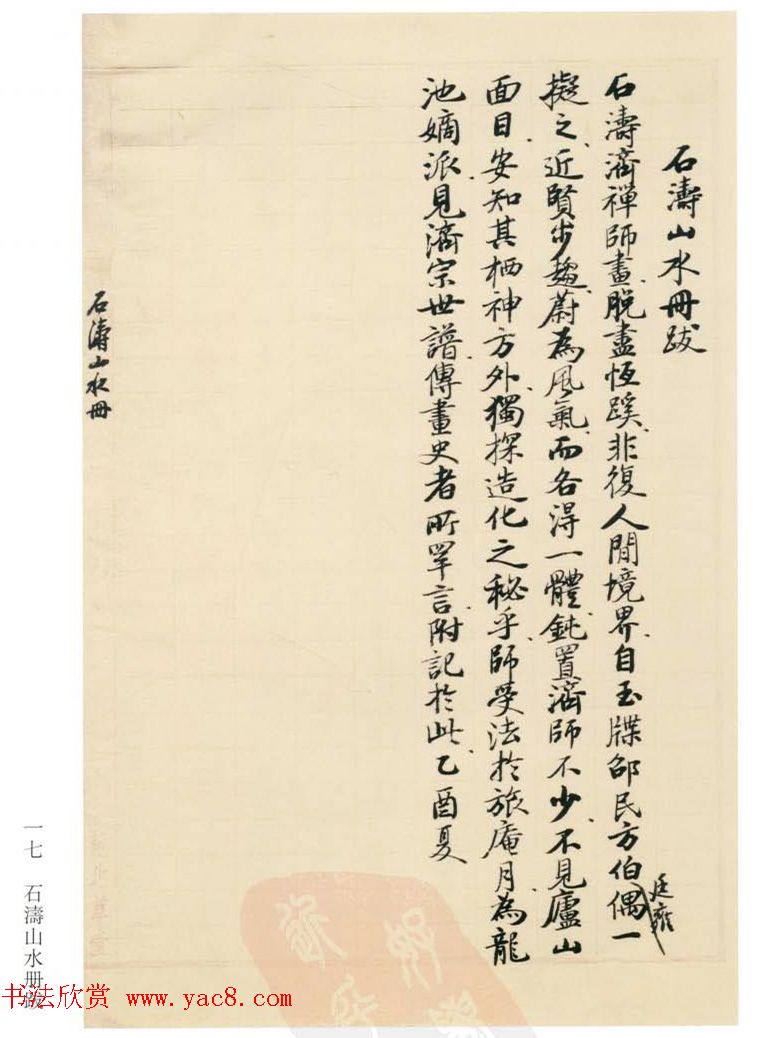 石濤山水冊跋
石濤濟禪師畫脫盡恆蹊非復人間境界自玉牒邵民方伯偶一
廷雍
擬之近賢步趨蔚為風氣而各得一體鈍置濟師不少不見廬山
面目安知其栖神方外獨探造化之秘乎師受法於旅庵月為龍
池嫡派見濟宗世譜傳畫史者所罕言附記於此乙酉夏
石濤山水冊
一七 石濤山水册跋
书法欣赏 www.yac8.com